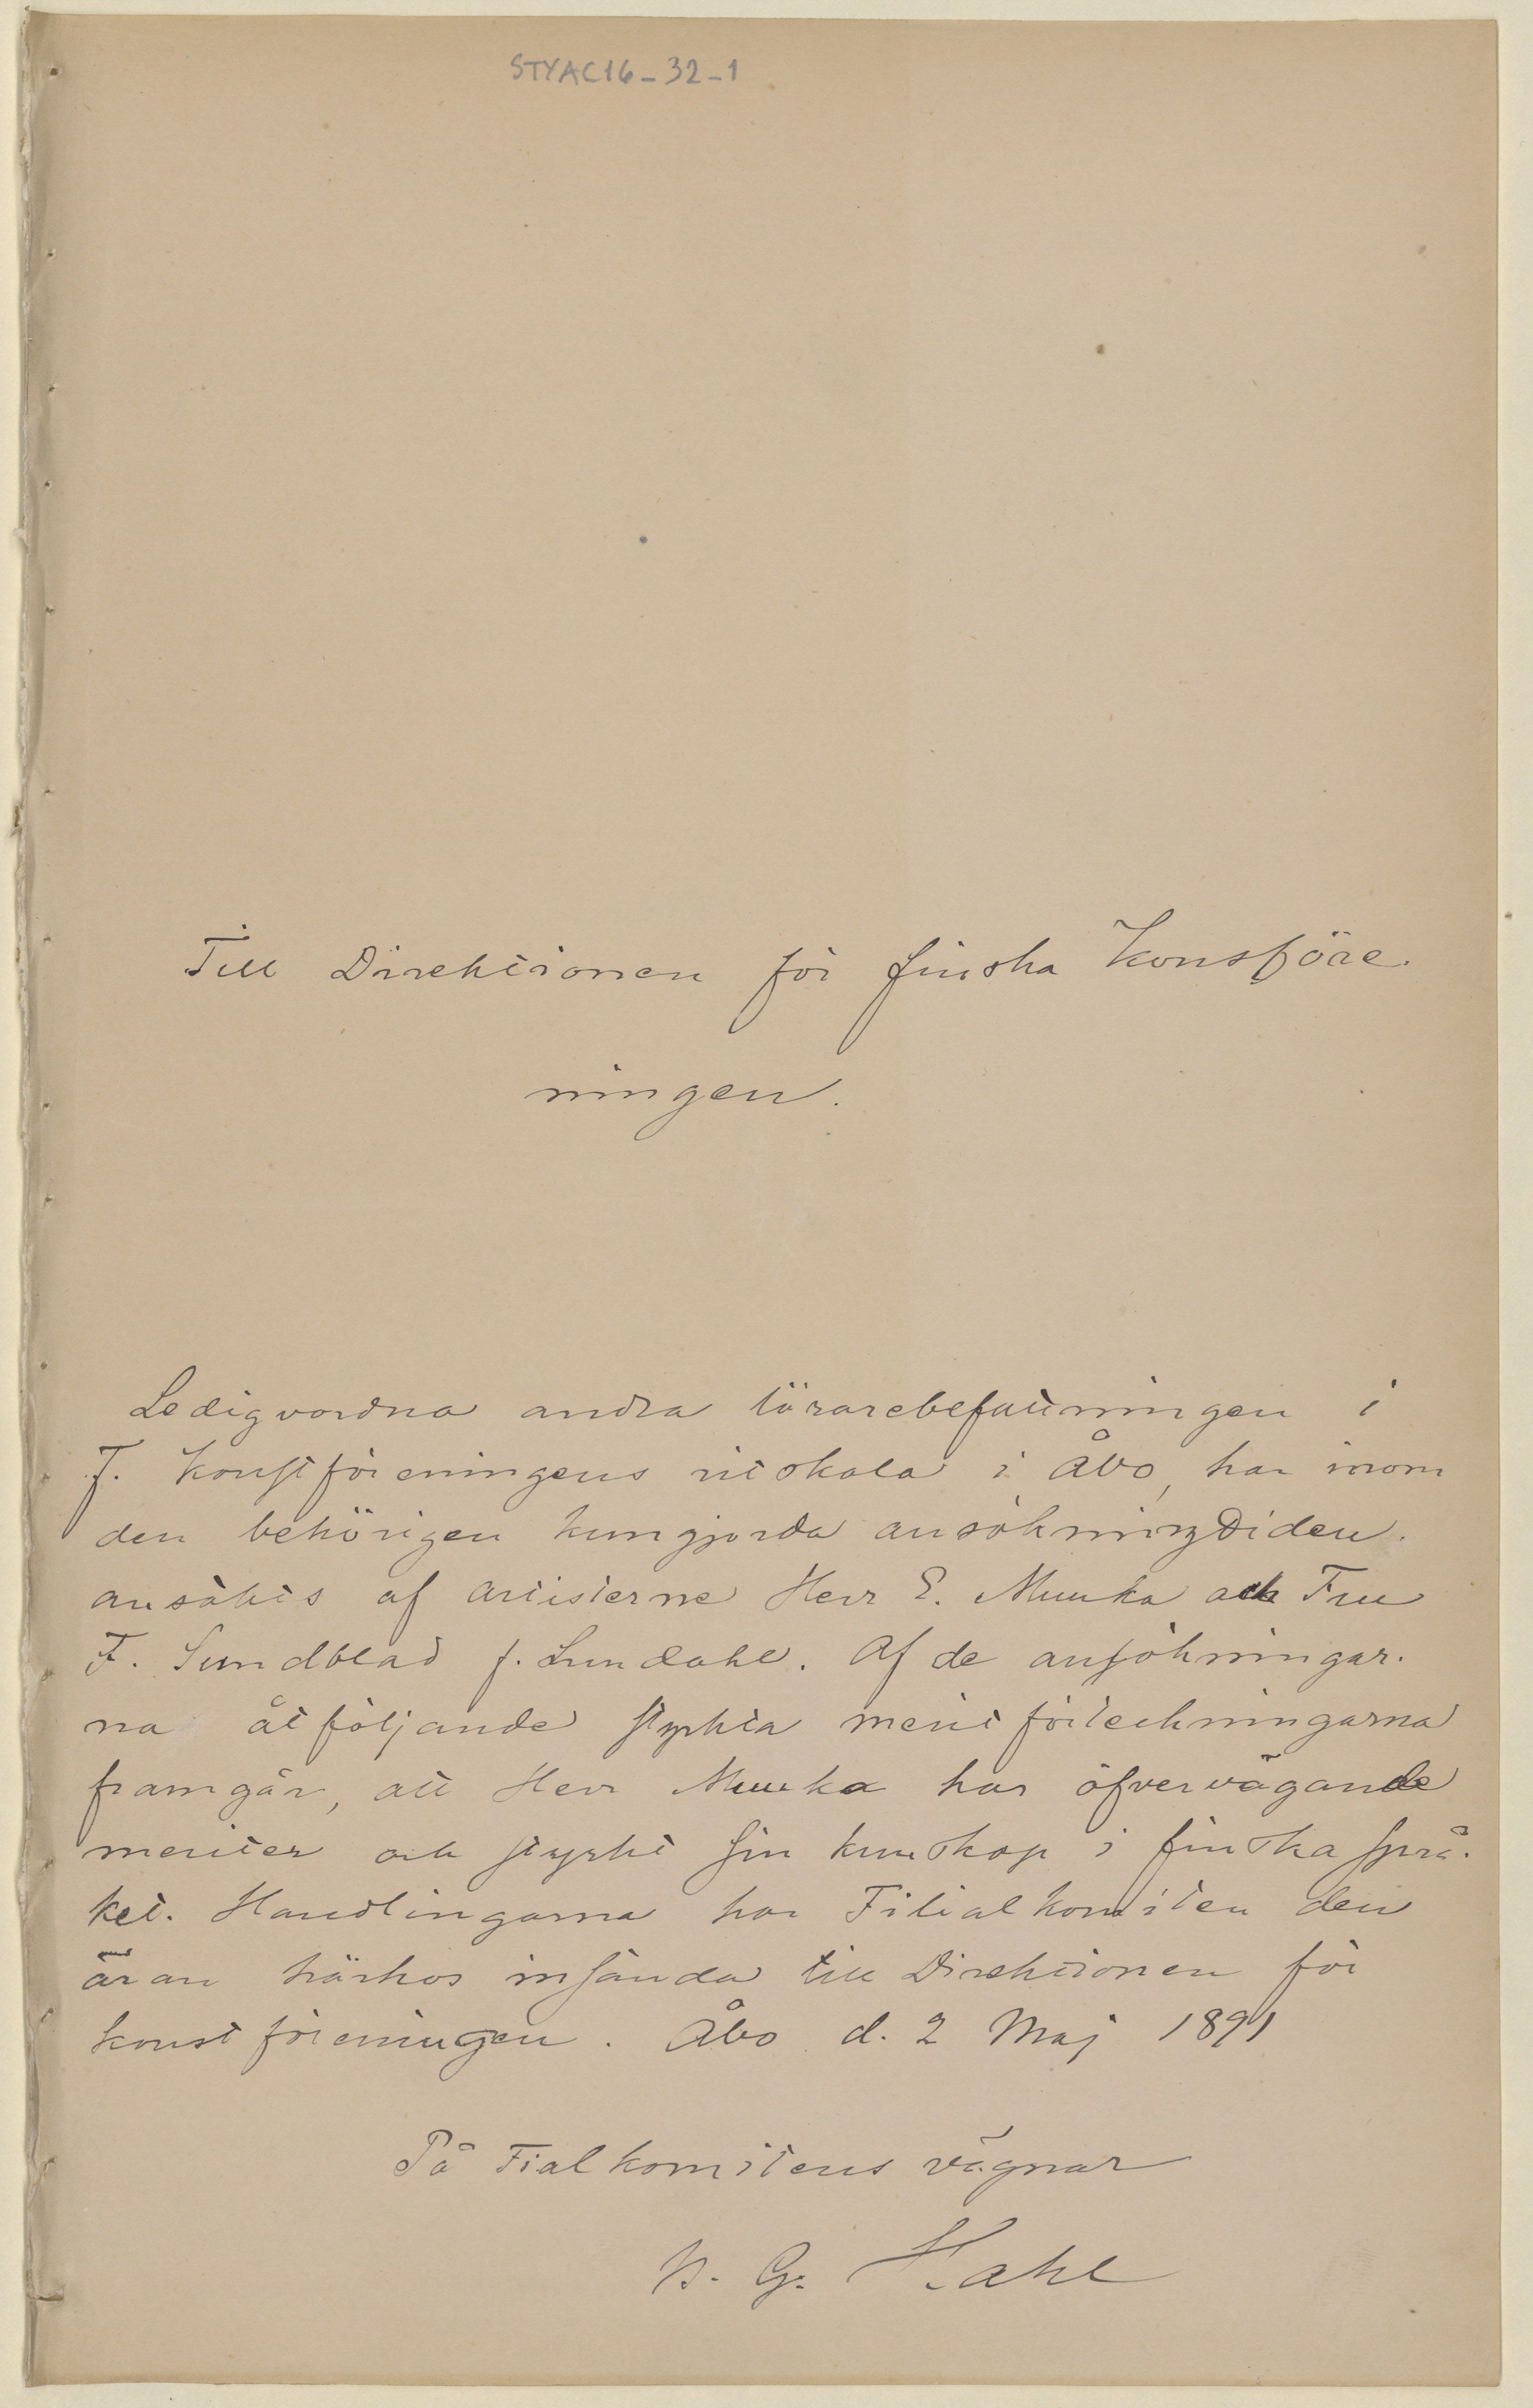 STYAC16-32-1
Till Direktionen för finska Konsföre-
ningen.
Ledigvordna andra lärarebefattningen i
F. Konstföreningens ritskola i Åbo, har inom
den behörigen kungjorda ansökningstiden
ansökts af artisterne Herr E. Muuka och Fru
F. Sundblad f. Lundahl. Af de ansökningar-
na åtföljande styrkta meritförteckningarna
framgår, att Herr Muuka har öfvervägande
meriter och styrkt sin kunskap i finska språ-
ket. Handlingarna har Filialkomiten den
äran härhos insända till Direktionen för
konstföreningen. Åbo d. 2 Maj 1891
På Fialkomitens vägnar
G. Hahl